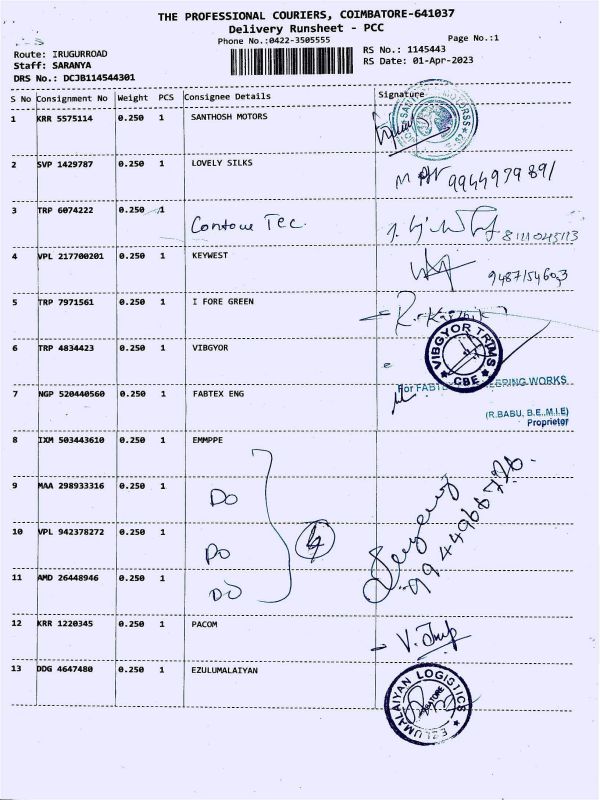 THE PROFESSIONAL COURIERS, COIMBATORE-641037
Delivery Runsheet - PCC
Phone No.:0422-3505555
Page No.:1
Route: IRUGURROAD
RS No.: 1145443
Staff: SARANYA
RS Date: 01-Apr-2023
DRS No.: DCJB114544301
S No Consignment No Weight PCS Consignee Details Signature
1 KRR 5575114 0.250 1 SANTHOSH MOTORS
2 SVP 1429787 0.250 1 LOVELY SILKS
3 TRP 6074222 0.250 1 Contour Tec. 8111045113
4 VPL 217700201 0.250 1 KEYWEST
5 TRP 7971561 0.250 1 I FORE GREEN
6 TRP 4834423 0.250 1 VIBGYOR VIBGYOR TRIMS CBE
7 NGP 520440560 0.250 1 FABTEX ENG
(R.BABU, B.E.,M.I.E)
Proprietor
8 IXM 503443610 0.250 1 EMMPPE
9 MAA 298933316 0.250 1 DO
10 VPL 942378272 0.250 1 DO
4
11 AMD 26448946 0.250 1 DO
12 KRR 1220345 0.250 1 PACOM
13 DDG 4647480 0.250 1 EZULUMALAIYAN
EZLUMALAIYAN LOGISTICS